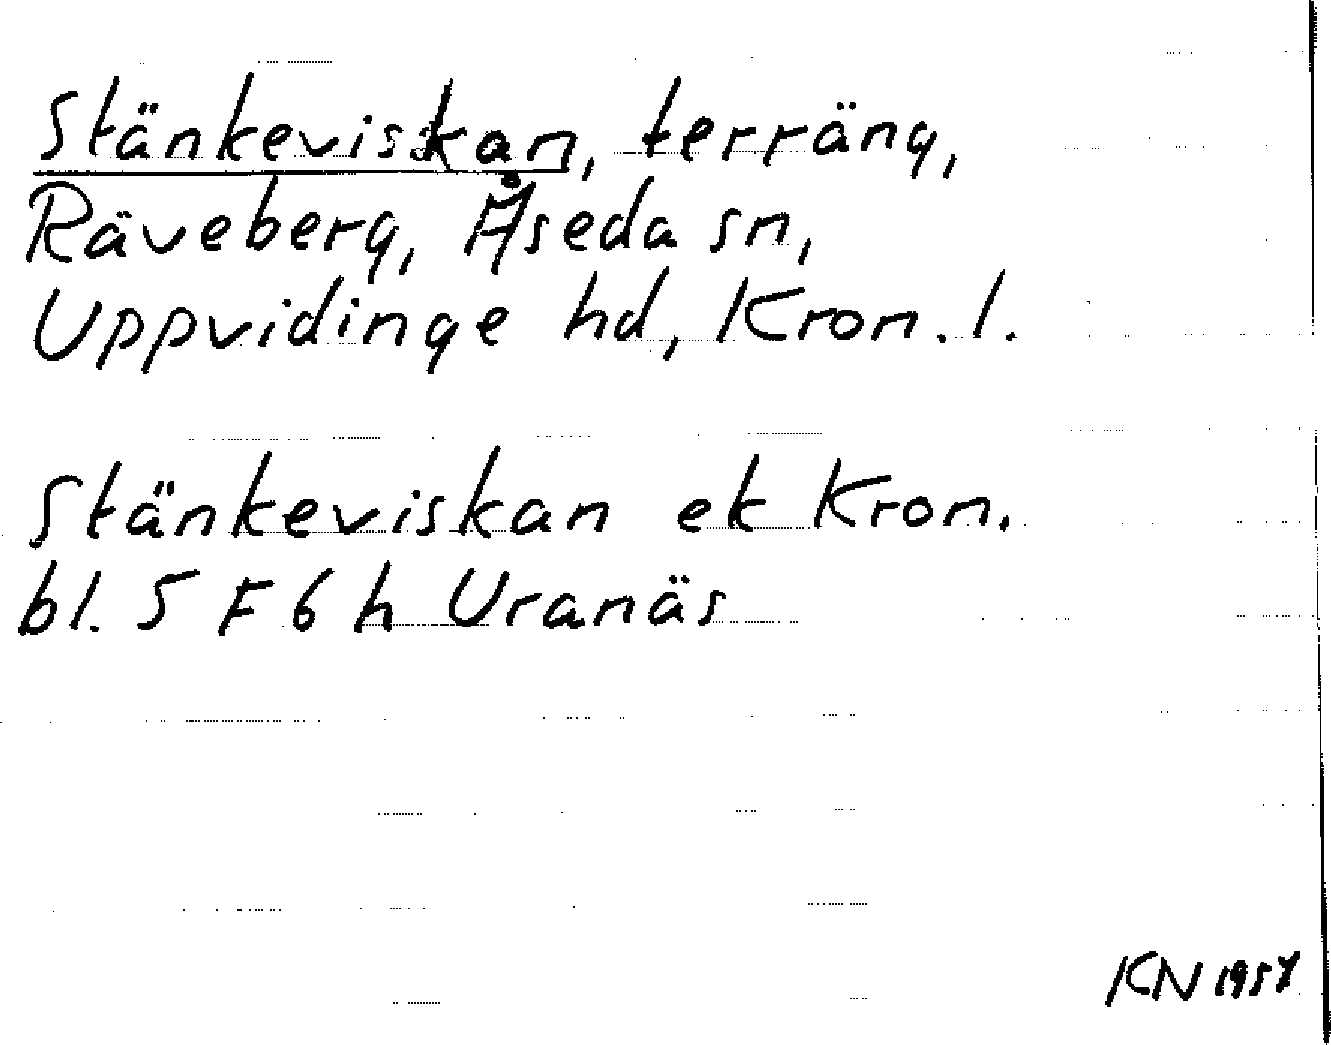 Stänkeviskan, terräng,
Räveberg, Åseda sn,
Uppvidinge hd, Kron. l.
Stänkeviskan ek Kron.
bl. 5 F 6 h Uranäs
KN